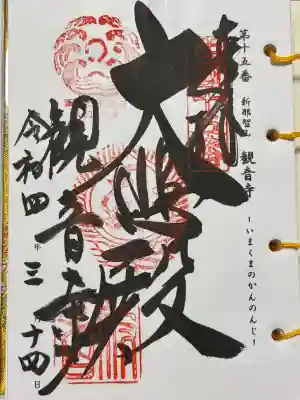 第十五番 新那智山 観音寺 -いまくまのかんのんじ-
奉拝
大悲殿
観音寺
令和四年三月十四日